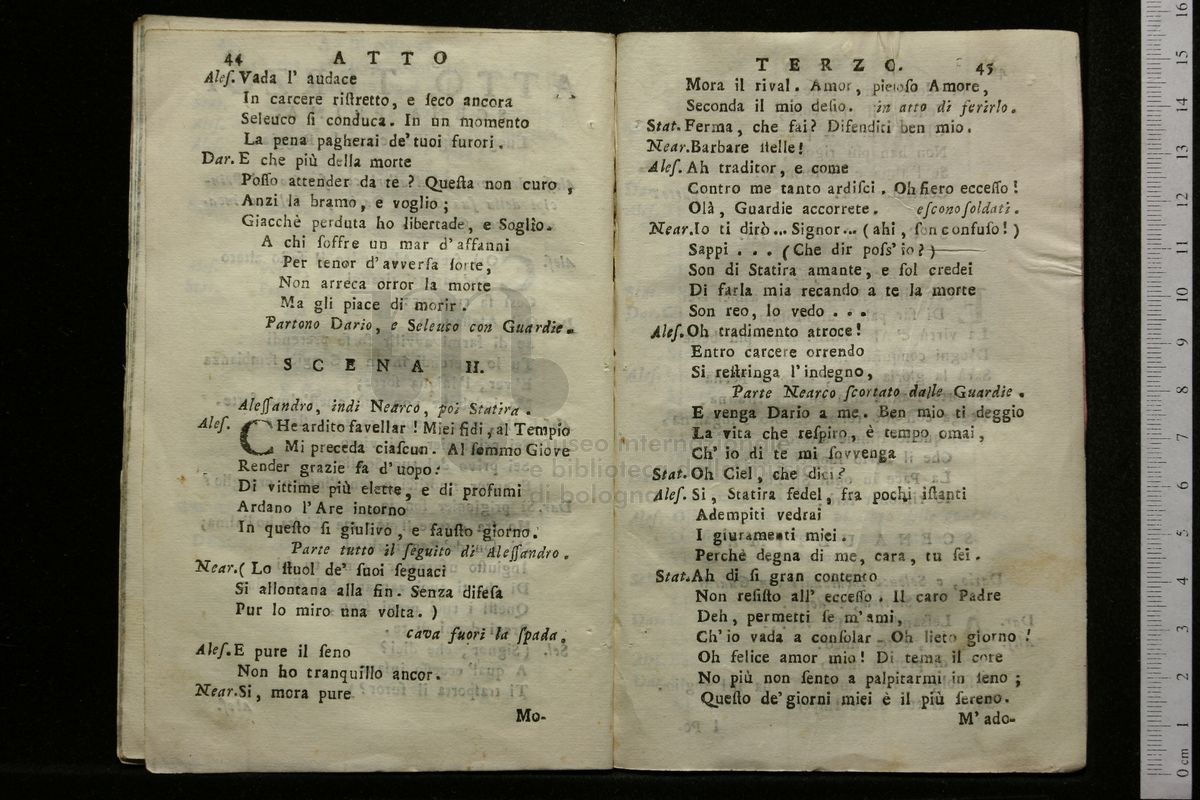 44 ATTO
Aleſ. Vada l' audace
In carcere riſtretto, e ſeco ancora
Seleuco ſi conduca. In un momento
La pena pagherai de' tuoi furori.
Dar. E che più della morte
Poſſo attender da te? Queſta non curo,
Anzi la bramo, e voglio;
Giacchè perduta ho libertade, e Soglio.
A chi ſoffre un mar d'affanni
Per tenor d'avverſa ſorte,
Non arreca orror la morte
Ma gli piace di morir.
Partono Dario, e Seleuco con Guardie.
SCENA II.
Aleſſandro, indi Nearco, poi Statira.
Aleſ. CHe ardito favellar! Miei fidi, al Tempio
Mi preceda ciaſcun. Al ſommo Giove
Render grazie fa d'uopo:
Di vittime più elette, e di profumi
Ardano l'Are intorno
In queſto ſi giulivo, e fauſto giorno.
Parte tutto il ſeguito di Aleſſandro.
Near. (Lo ſtuol de' ſuoi ſeguaci
Si allontana alla fin. Senza difeſa
Pur lo miro una volta.)
cava fuori la ſpada.
Aleſ. E pure il ſeno
Non ho tranquillo ancor.
Near. Si, mora pure
Mo-
TERZO. 45
Mora il rival. Amor, pietoſo Amore,
Seconda il mio deſio. in atto di ferirlo.
Stat. Ferma, che fai? Difenditi ben mio.
Near. Barbare ſtelle!
Aleſ. Ah traditor, e come
Contro me tanto ardiſci. Oh fiero ecceſſo!
Olà, Guardie accorrete. eſcono ſoldati.
Near. Io ti dirò... Signor... (ahi, ſon confuſo!)
Sappi... (Che dir poſs'io?)
Son di Statira amante, e ſol credei
Di farla mia recando a te la morte
Son reo, lo vedo...
Aleſ. Oh tradimento atroce!
Entro carcere orrendo
Si reſtringa l'indegno,
Parte Nearco ſcortato dalle Guardie.
E venga Dario a me. Ben mio ti deggio
La vita che reſpiro, è tempo omai,
Ch' io di te mi ſovvenga
Stat. Oh Ciel, che dici?
Aleſ. Si, Statira fedel, fra pochi iſtanti
Adempiti vedrai
I giuramenti miei.
Perchè degna di me, cara, tu ſei.
Stat. Ah di ſi gran contento
Non reſiſto all' ecceſſo. Il caro Padre
Deh, permetti ſe m'ami,
Ch'io vada a conſolar. Oh lieto giorno!
Oh felice amor mio! Di tema il core
No più non ſento a palpitarmi in ſeno;
Queſto de' giorni miei è il più ſereno.
M' ado-
museo internazionale
e biblioteca della musica
di bologna
0 cm 1 2 3 4 5 6 7 8 9 10 11 12 13 14 15 16